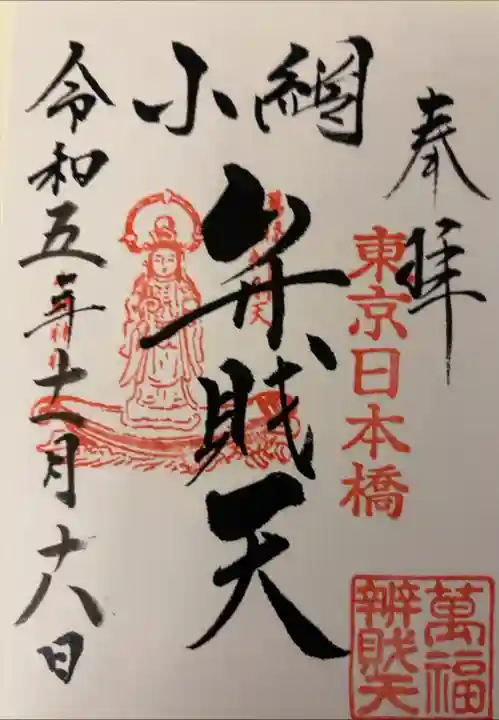 奉拝
東京日本橋
小網
弁賎天
令和五年十一月十八日
萬福
辨賎天